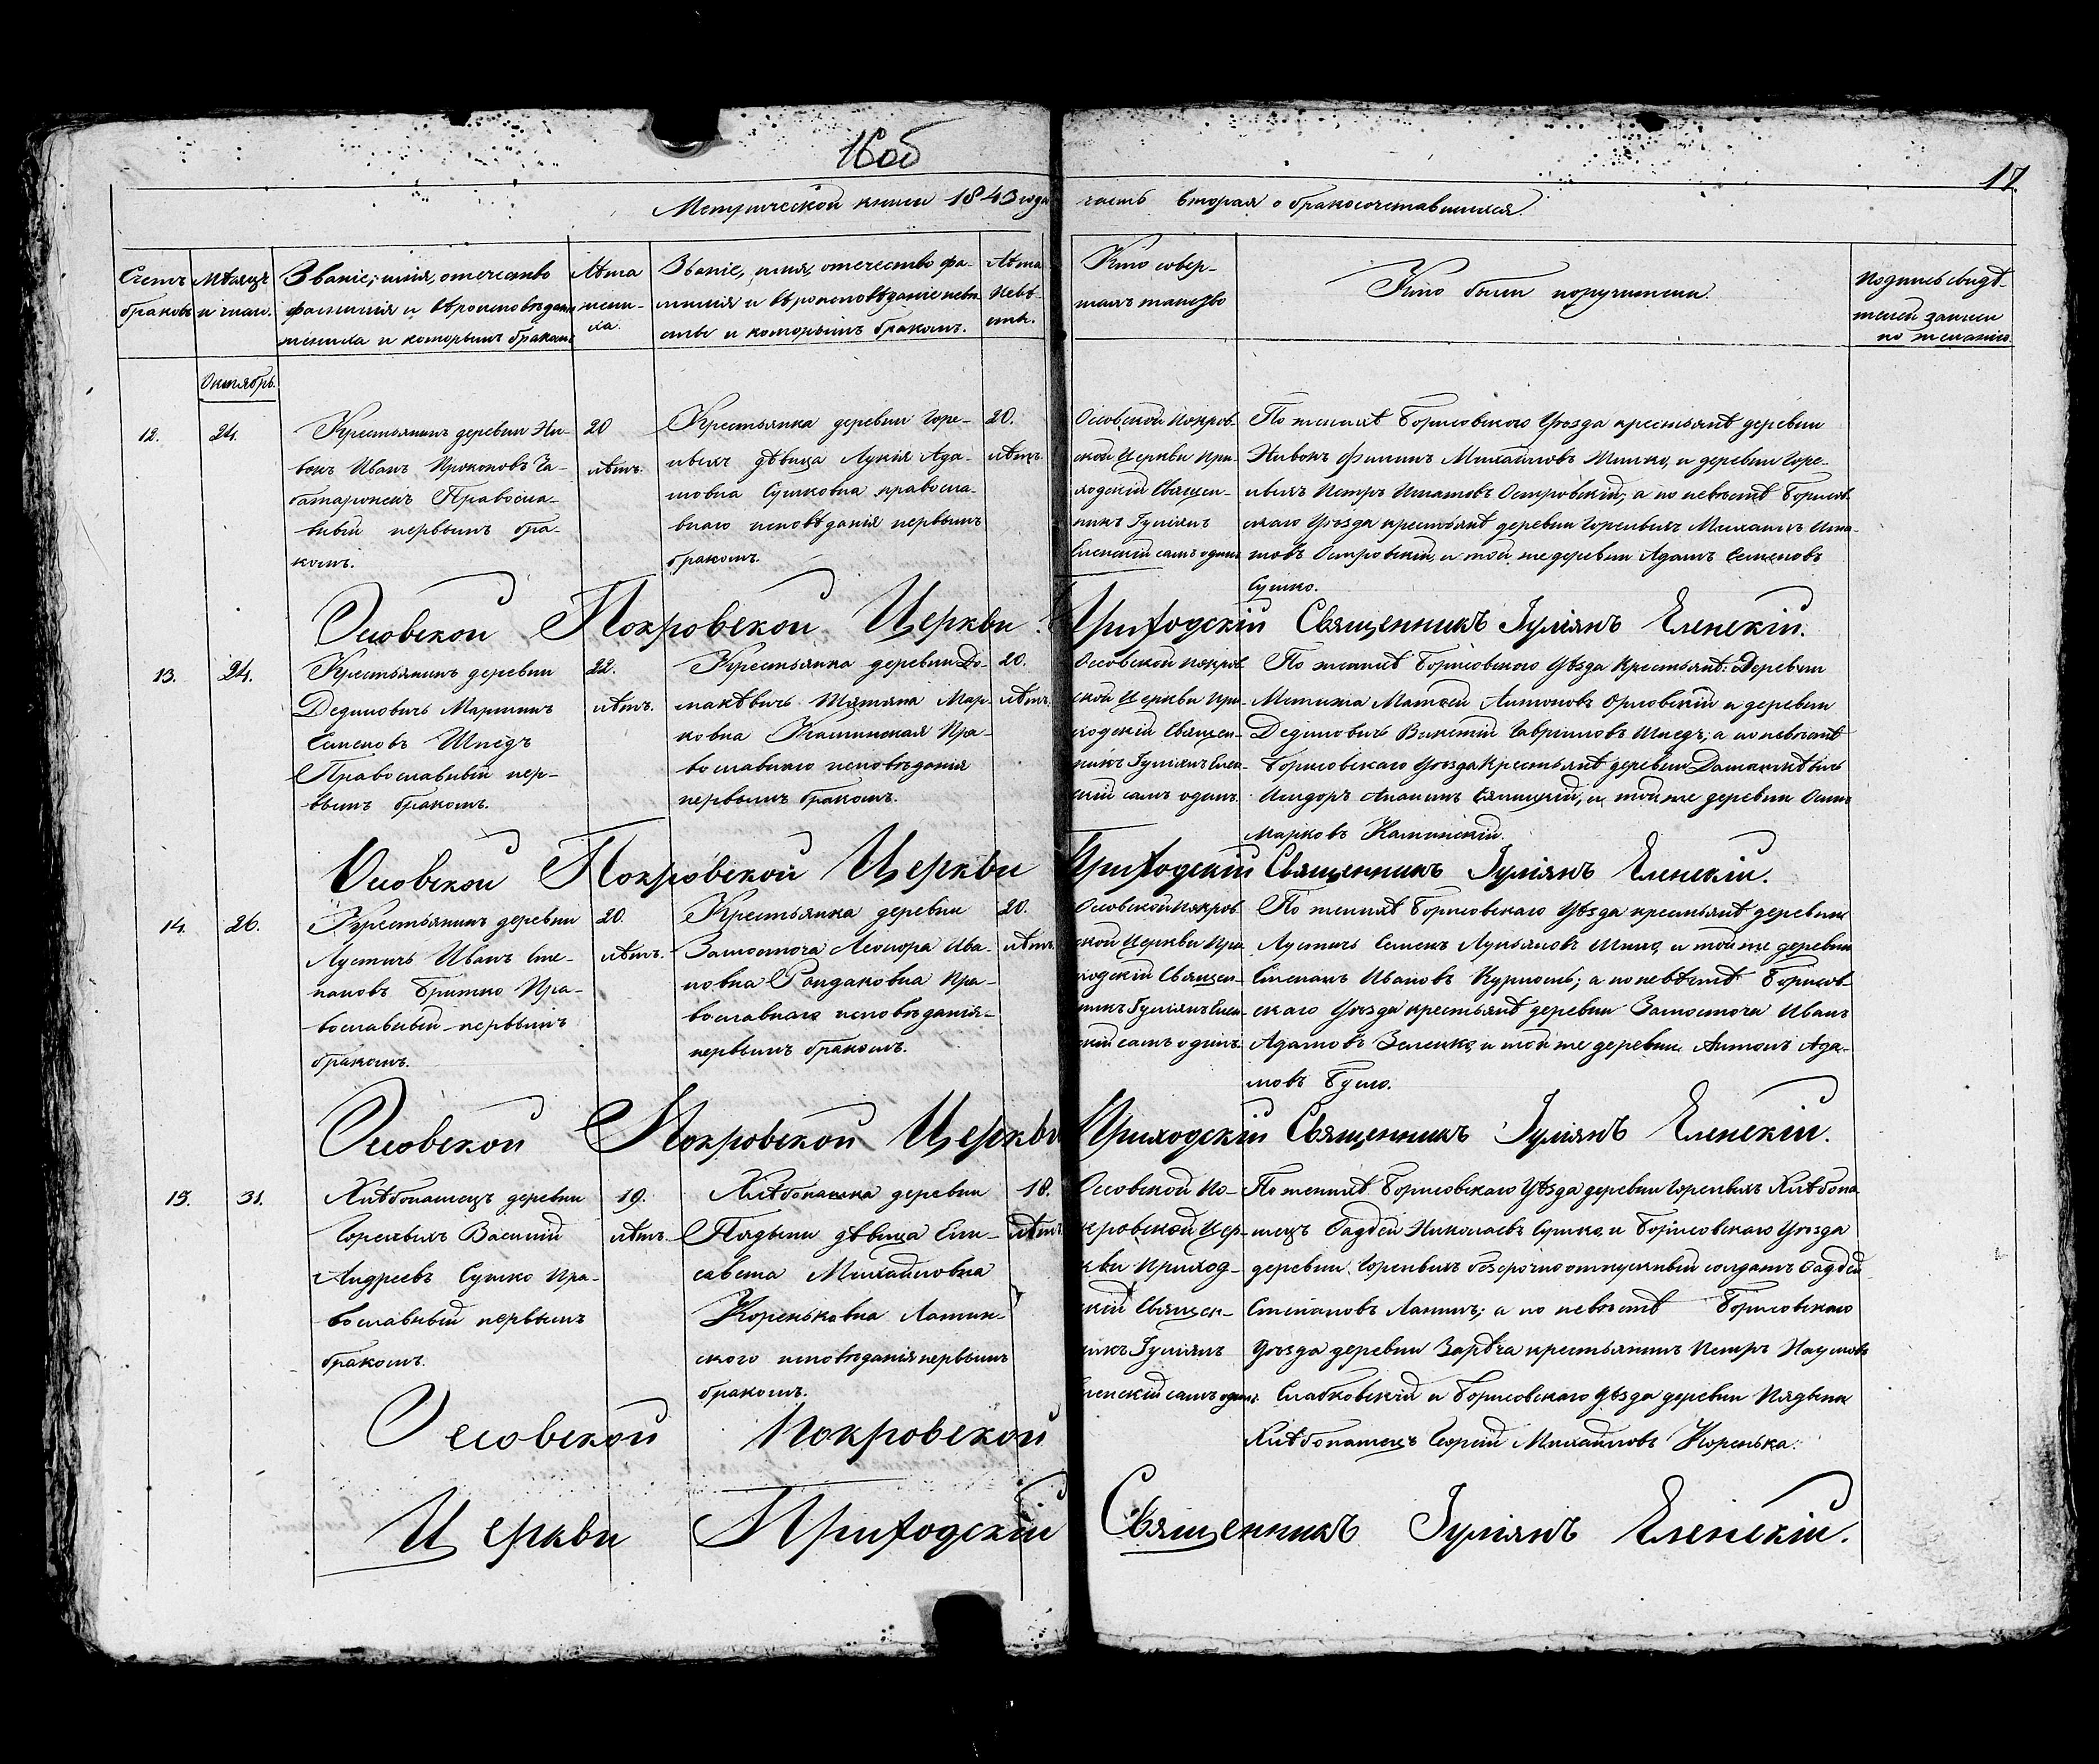 16об
17.
Метрической книги 1843 года часть вторая о бракосочетавшихся.
Счетъ браковъ
Мѣсяцъ и число.
Званіе, имя, отечество
фамилія и вѣроисповѣданіе
жениха и которымъ бракомъ
Лѣта жени-
ха.
Званіе, имя, отечество фа-
милія и вѣроисповѣданіе невѣ-
сты и которымъ бракомъ.
Лѣта
невѣ-
сты.
Кто совер-
шалъ таинство
Кто были поручители.
Подпись свидѣ-
телей записи
по желанію.
Октябрь.
12.
24.
Крестьянинъ деревни Ни-
вокъ Иванъ Прокоповъ Ча-
батарюнекъ Правосла-
вный первымъ бра-
комъ.
20
лѣтъ.
Крестьянка деревни Горе-
лыхъ дѣвица Лукія Ада-
мовна Сушковна правосла-
внаго исповѣданія первымъ
бракомъ.
20.
лѣтъ.
Осовской Покров-
ской Церкви При-
ходскій Священ-
никъ Іуліянъ
Еленскій самъ одинъ
По женихѣ Борисовскаго Уѣзда крестьянѣ деревни
Нивокъ Филипъ Михайловъ Шишко, и деревни Горе-
лыхъ Петръ Игнатовъ Островскій; а по невѣстѣ Борисов-
скаго Уѣзда крестьянѣ деревни Горелыхъ Михаилъ Игна-
товъ Островскій, и той же деревни Адамъ Семеновъ
Сушко.
Осовской Покровской Церкви Приходскій Священникъ Іуліянъ Еленскій.
13.
24.
Крестьянинъ деревни
Дединовичь Мартинъ
Семеновъ Шнедъ
Православный пер-
вымъ бракомъ.
22.
лѣтъ.
Крестьянка деревни До-
макѣвичь Татяна Мар-
ковна Каминская Пра-
вославнаго исповѣданія
первымъ бракомъ.
20.
лѣтъ.
Осовской Покров
ской Церкви При-
ходскій Священ-
никъ Іуліянъ Елен-
скій самъ одинъ.
По женихѣ Борисовскаго Уѣзда Крестьянѣ: Деревни
Матвей Антоновъ Орловскій и деревни
Дединовичь Викентій Гавриловъ Шнедъ; а по невѣстѣ
Борисовскаго Уѣзда Крестьянѣ деревни Дамакѣвичь
Исидоръ и той же деревни Осипъ
Марковъ Каминскій.
Осовской Покровской Церкви Приходскій Священникъ Іуліянъ Еленскій.
14.
26.
Крестьянинъ деревни
Лустичь Иванъ Сте-
пановъ Бритко Пра-
вославный первымъ
бракомъ.
20.
лѣтъ.
Крестьянка деревни
Замосточа Леонора Ива-
новна Рондаковна Пра-
вославнаго исповѣданія
первымъ бракомъ.
20.
лѣтъ.
Осовской Покров
ской Церкви При
ходскій Священ-
никъ Іуліянъ Елен-
скій самъ одинъ.
По женихѣ Борисовскаго Уѣзда крестьянѣ деревни
Лустичь Семенъ Лукьяновъ Шило, и той же деревни
Степанъ Ивановъ Курность; а по невѣстѣ Борисов-
скаго Уѣзда крестьянѣ деревни Замосточи Иванъ
Адамовъ Зеленко, и той же деревни Антонъ Ада-
мовъ Бушо.
Осовской Покровской Церкви Приходскій Священникъ Іуліянъ Еленскій.
15.
31.
Хлѣбопашецъ деревни
Горелыхъ Василій
Андреевъ Сушко Пра-
вославный первымъ
бракомъ.
19.
лѣтъ.
Хлѣбопашка деревни
Пядыни дѣвица Ели-
савета Михайловна
Кореньковна Латин-
скаго исповѣданія первымъ
бракомъ.
18.
лѣтъ
Осовской По-
кровской Цер-
кви Приход-
скій Священ-
никъ Іуліянъ
Еленскій самъ одинъ.
По женихѣ Борисовскаго Уѣзда деревни Горелыхъ Хлѣбопа-
шецъ Фаддей Николаевъ Сушко, и Борисовскаго Уѣзда
деревни Горелыхъ безсрочно отпускный солдатъ Фаддей
Степановъ Лапичь; а по невѣстѣ Борисовскаго
Уѣзда деревни Зарѣча крестьянинъ Петръ Наумовъ
Слабковскій и Борисовскаго Уѣзда деревни Пядыни
Хлѣбопашецъ Георгій Михайловъ Коренька.
Осовской Покровской
Церкви Приходскій Священникъ Іуліянъ Еленскій.